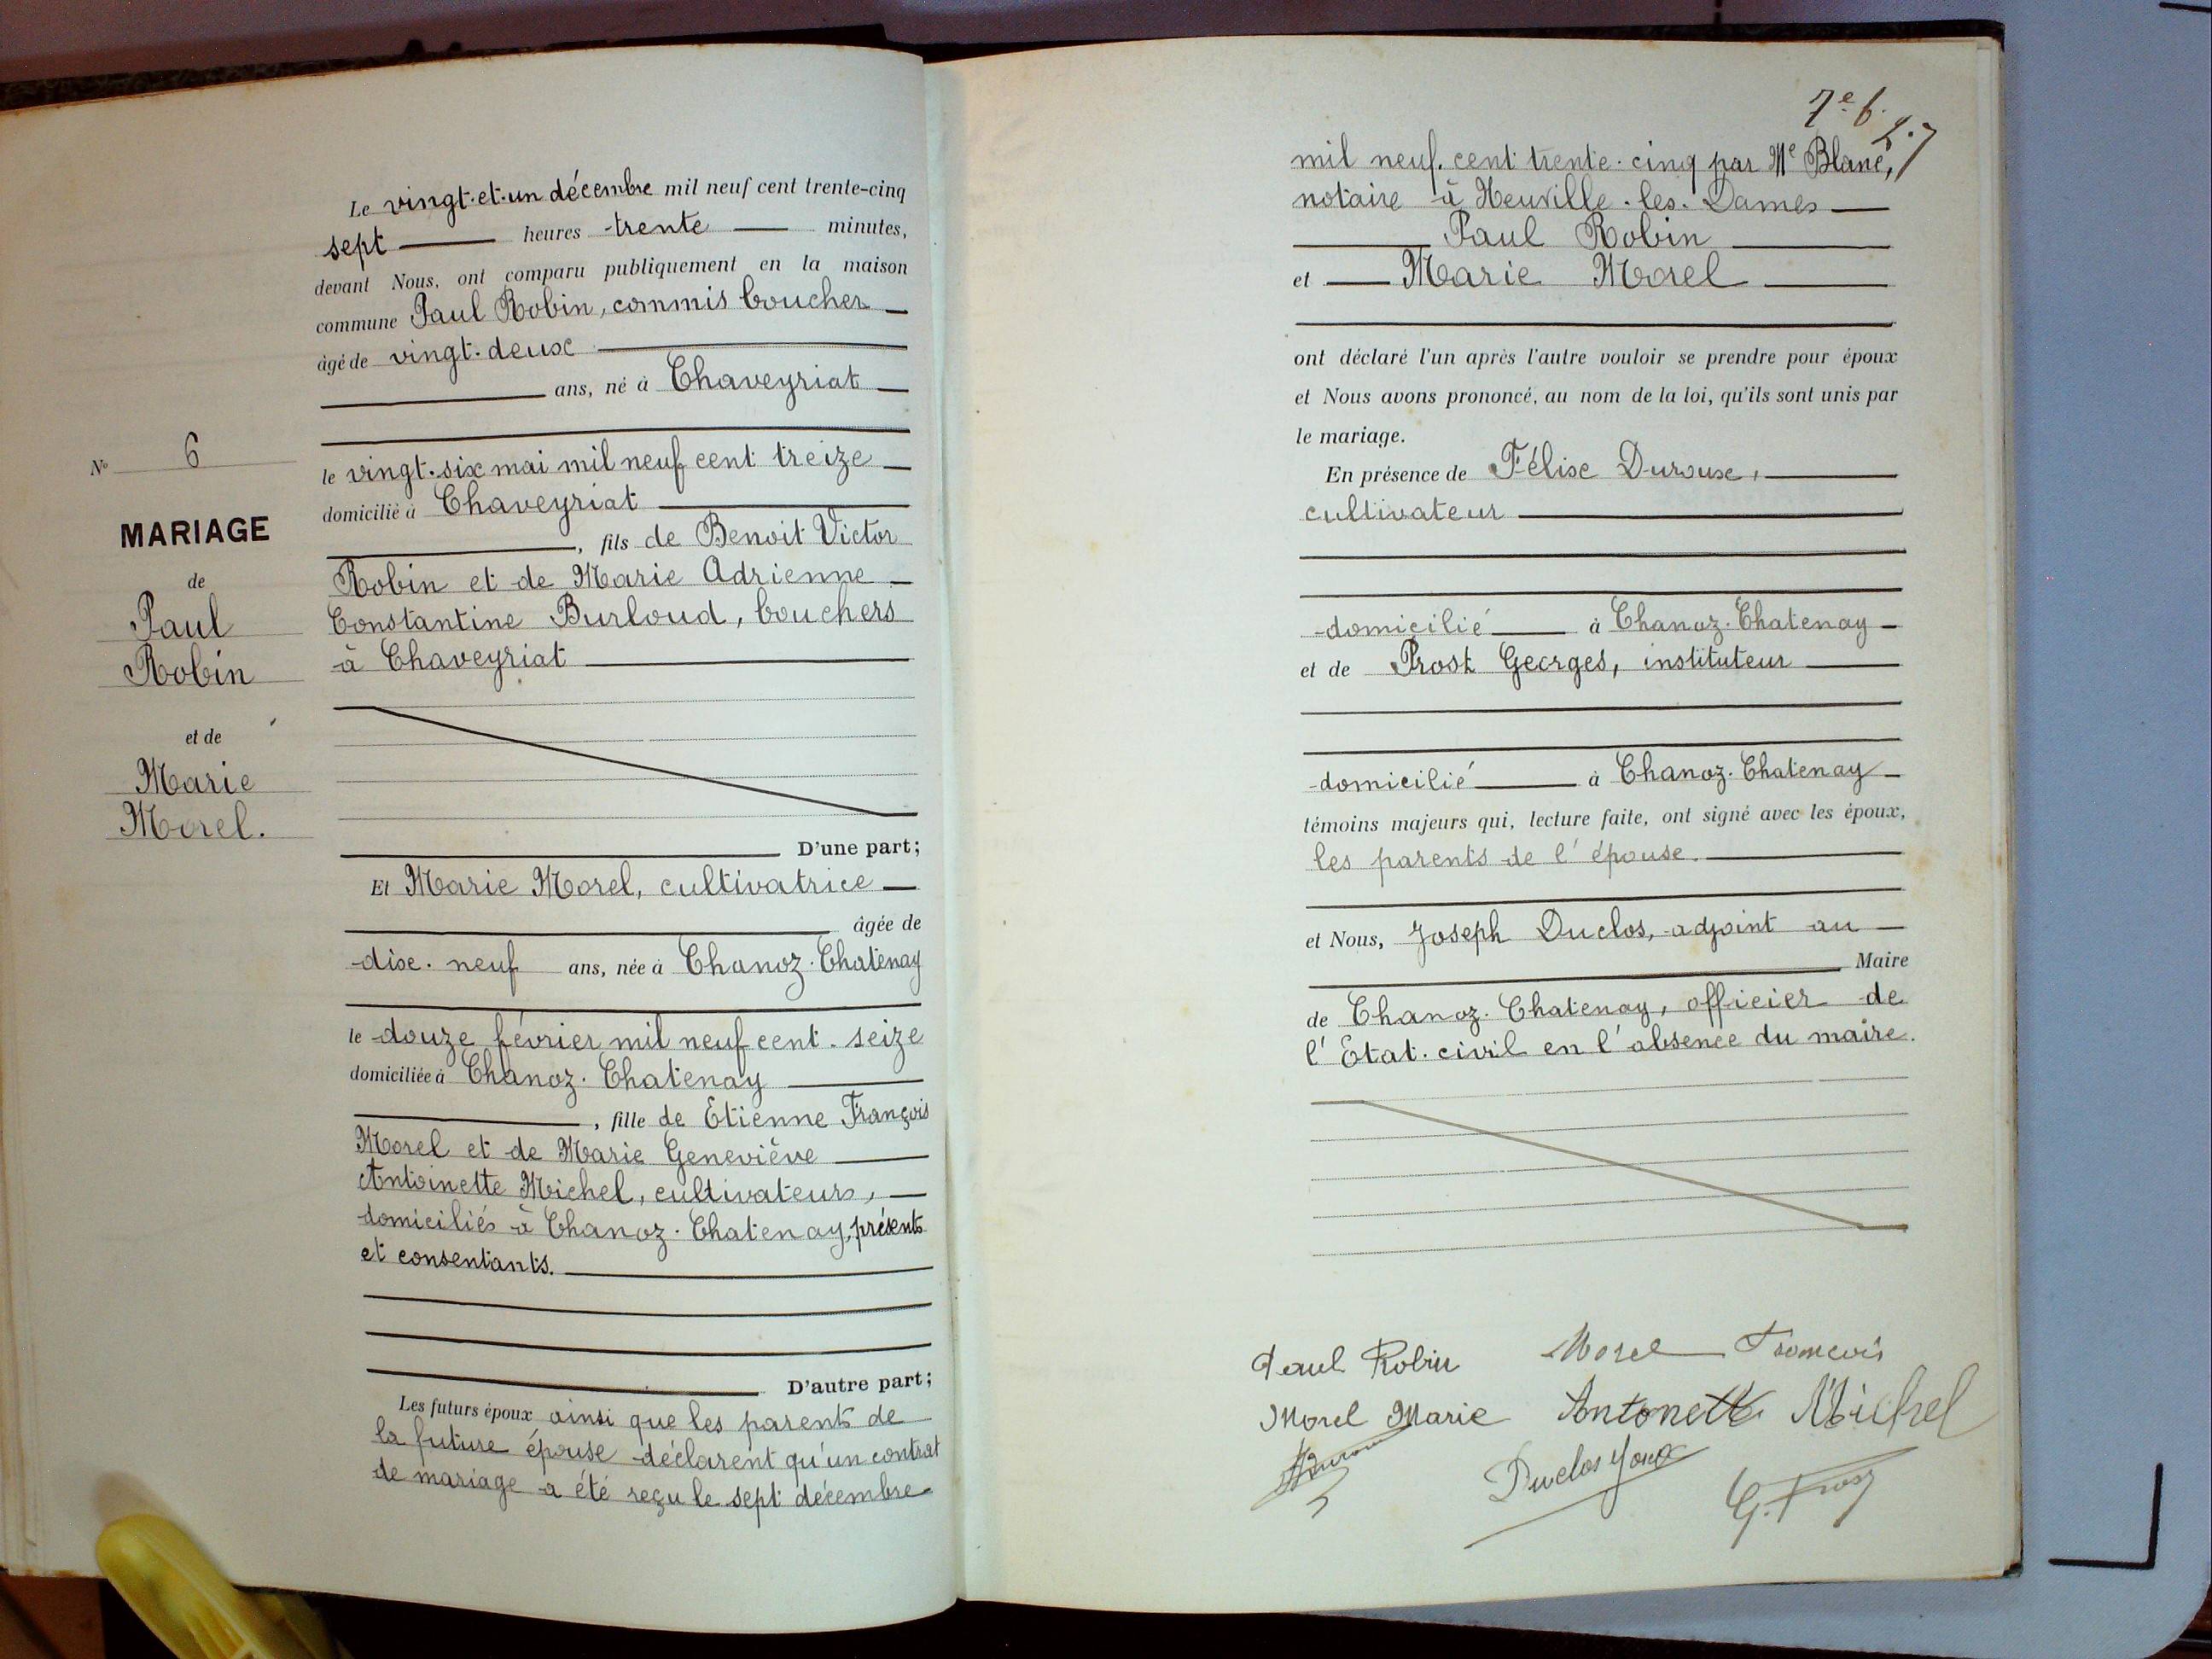 Le vingt-et-un décembre mil neuf cent trente-cinq
sept heures trente minutes,
devant Nous, ont comparu publiquement en la maison
commune Paul Robin, commis boucher
âgé de vingt-deux
ans, né à Chaveyriat
le vingt-six mai mil neuf cent treize
domicilié à Chaveyriat
, fils de Benoit Victor
Robin et de Marie Adrienne
Constantine Burloud, bouchers
à Chaveyriat
D'une part;
Et Marie Morel, cultivatrice
âgée de
dix-neuf ans, née à Chanoz-Chatenay
le douze février mil neuf cent-seize
domiciliée à Chanoz-Chatenay
, fille de Etienne François
Morel et de Marie Geneviève
Antoinette Michel, cultivateurs,
domiciliés à Chanoz-Chatenay, présents
et consentants.
D'autre part;
Les futurs époux ainsi que les parents de
la future épouse déclarent qu'un contrat
de mariage a été reçu le sept décembre
No 6
MARIAGE
de
Paul
Robin
et de
Marie
Morel.
7e f.
mil neuf-cent trente-cinq par Me Blanc,
notaire à Neuville-les-Dames
Paul Robin
et Marie Morel
ont déclaré l'un après l'autre vouloir se prendre pour époux
et Nous avons prononcé, au nom de la loi, qu'ils sont unis par
le mariage.
En présence de Félix Duroux,
cultivateur
domicilié à Chanoz-Chatenay
et de Prost Georges, instituteur
domicilié à Chanoz-Chatenay
témoins majeurs qui, lecture faite, ont signé avec les époux,
les parents de l'épouse.
et Nous, Joseph Duclos, adjoint au
Maire
de Chanoz-Chatenay, officier de
l'Etat-civil en l'absence du maire.
Paul Robin Morel François
Morel Marie Antonette Michel
Duclos G. Prost